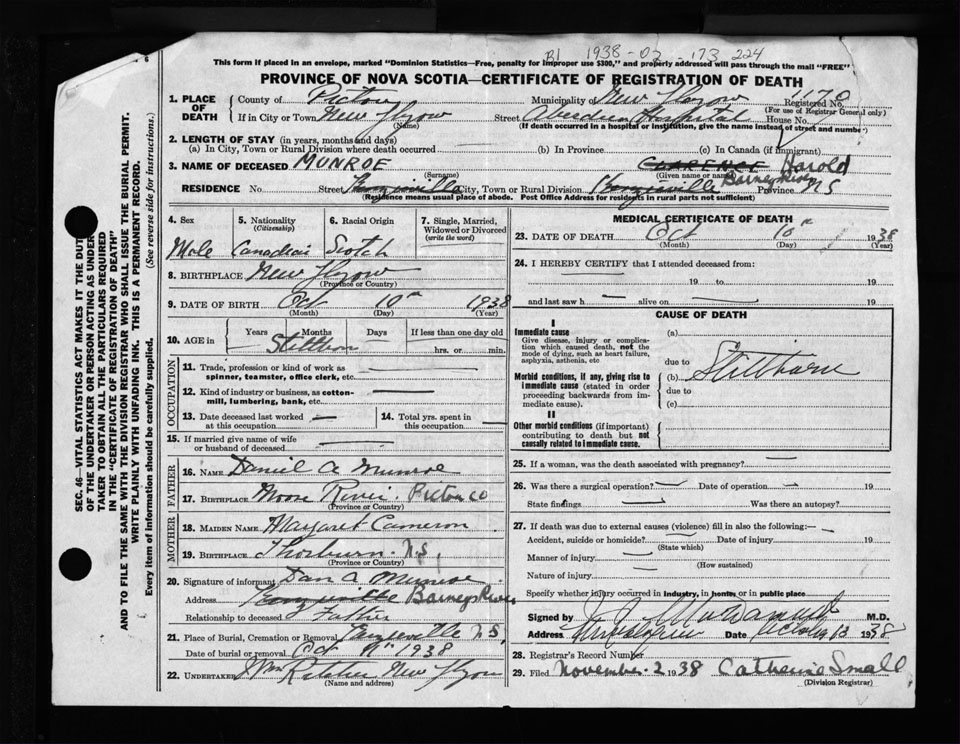 1938-02-173224
This form if placed in an envelope, marked "Dominion Statistics—Free, penalty for improper use $300," and properly addressed will pass through the mail "FREE"
PROVINCE OF NOVA SCOTIA—CERTIFICATE OF REGISTRATION OF DEATH
1. PLACE OF DEATH County of Pictou Municipality of New Glasgow Registered No. 1170
(For use of Registrar General only)
If in City or Town New Glasgow Street Aberdeen Hospital House No.
(Name) (If death occurred in a hospital or institution, give the name instead of street and number)
2. LENGTH OF STAY (in years, months and days)
(a) In City, Town or Rural Division where death occurred (b) In Province (c) In Canada (if immigrant)
3. NAME OF DECEASED MUNROE CLARENCE Harold
(Surname) (Given name or names)
RESIDENCE No. Street City, Town or Rural Division Barneys River Province N S
(Residence means usual place of abode. Post Office Address for residents in rural parts not sufficient)
SEC. 46—VITAL STATISTICS ACT MAKES IT THE DUTY
OF THE UNDERTAKER OR PERSON ACTING AS UNDER-
TAKER TO OBTAIN ALL THE PARTICULARS REQUIRED
IN THE "CERTIFICATE OF REGISTRATION OF DEATH"
AND TO FILE THE SAME WITH THE DIVISION REGISTRAR WHO SHALL ISSUE THE BURIAL PERMIT.
WRITE PLAINLY WITH UNFADING INK. THIS IS A PERMANENT RECORD.
Every item of information should be carefully supplied. (See reverse side for instructions.)
4. Sex 5. Nationality (Citizenship) 6. Racial Origin 7. Single, Married, Widowed or Divorced (write the word)
Male Canadian Scotch
8. BIRTHPLACE New Glasgow
(Province or Country)
9. DATE OF BIRTH Oct 10th 1938
(Month) (Day) (Year)
10. AGE in Years Months Days If less than one day old
Stillborn hrs. or min.
OCCUPATION
11. Trade, profession or kind of work as spinner, teamster, office clerk, etc.
12. Kind of industry or business, as cotton-mill, lumbering, bank, etc.
13. Date deceased last worked at this occupation 14. Total yrs. spent in this occupation
15. If married give name of wife or husband of deceased
FATHER
16. NAME Daniel A Munroe
17. BIRTHPLACE Moose River. Pictou Co
(Province or Country)
MOTHER
18. MAIDEN NAME Margaret Cameron
19. BIRTHPLACE Thorburn. N.S,
(Province or Country)
20. Signature of informant Dan A Munroe
Address Barneys River
Relationship to deceased Father
21. Place of Burial, Cremation or Removal N S,
Date of burial or removal Oct 1938
22. UNDERTAKER New Glasgow
(Name and address)
MEDICAL CERTIFICATE OF DEATH
23. DATE OF DEATH Oct 10th 1938
(Month) (Day) (Year)
24. I HEREBY CERTIFY that I attended deceased from:
19 to 19
and last saw h alive on 19
CAUSE OF DEATH
I
Immediate cause (a)
Give disease, injury or complication which caused death, not the mode of dying, such as heart failure, asphyxia, asthenia, etc
due to
Morbid conditions, if any, giving rise to immediate cause (stated in order proceeding backwards from immediate cause). (b) Stillborn
due to
(c)
II
Other morbid conditions (if important) contributing to death but not causally related to immediate cause.
25. If a woman, was the death associated with pregnancy?
26. Was there a surgical operation? Date of operation 19
State findings Was there an autopsy?
27. If death was due to external causes (violence) fill in also the following:—
Accident, suicide or homicide? Date of injury 19
(State which)
Manner of injury
(How sustained)
Nature of injury
Specify whether injury occurred in industry, in home, or in public place
Signed by M.D.
Address Date 1938
28. Registrar's Record Number
29. Filed November-2 1938 Catherine Small
(Division Registrar)